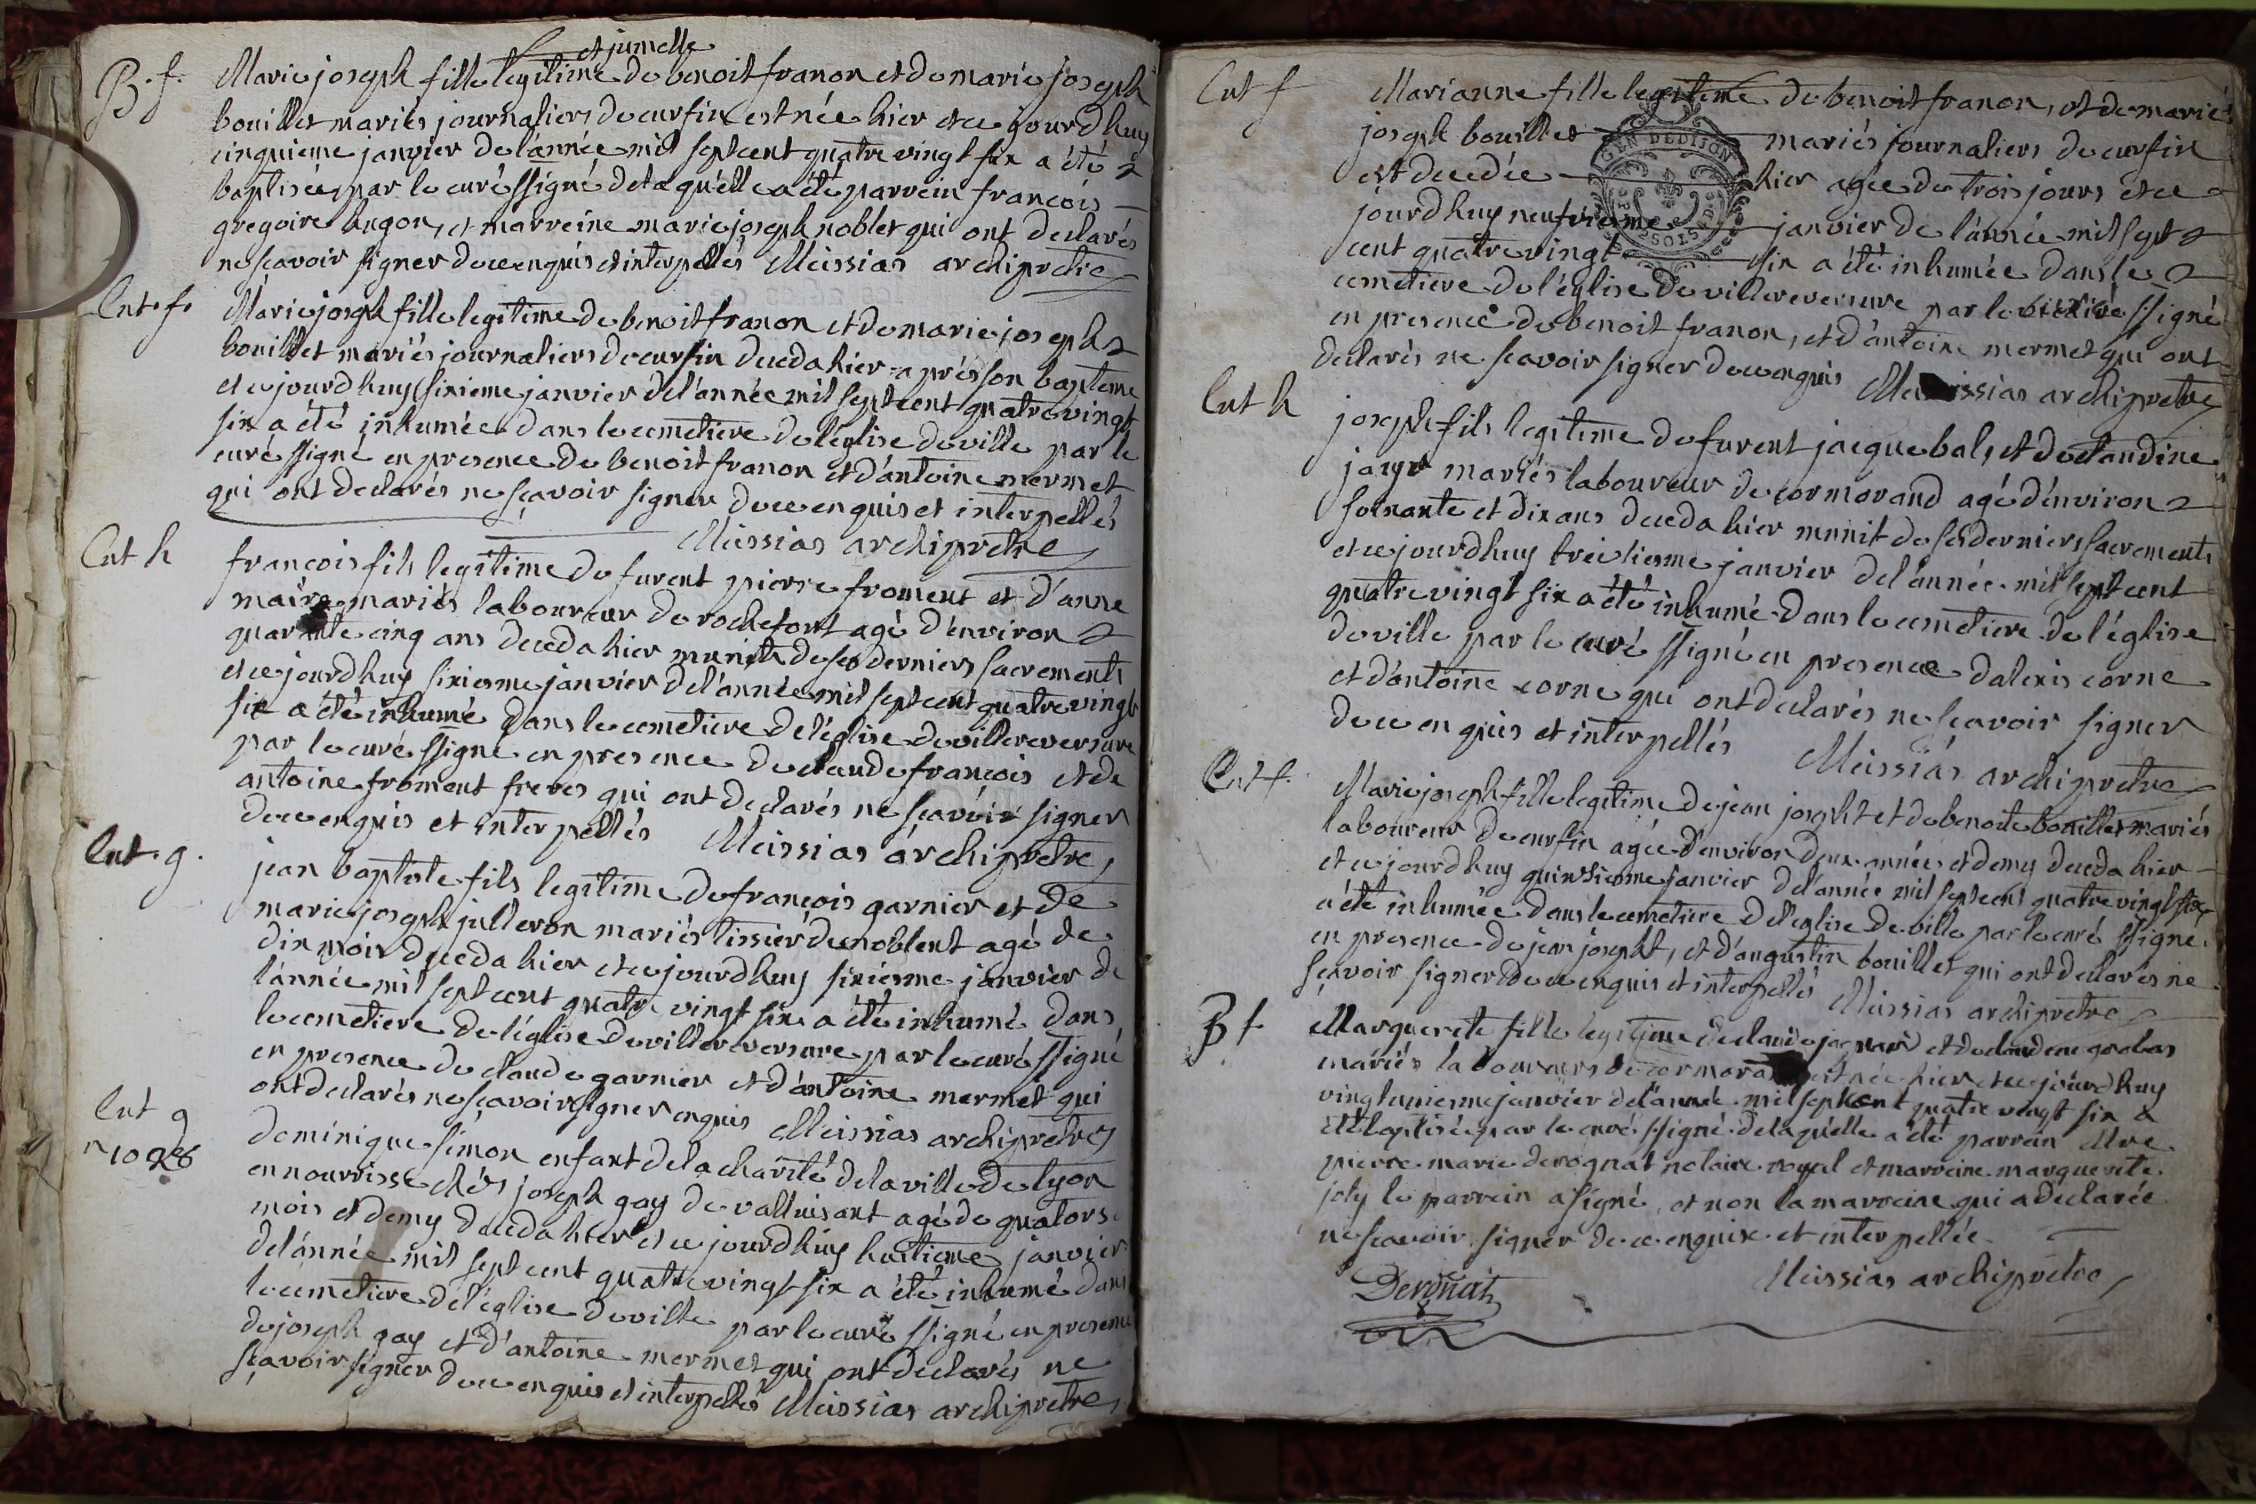 et jumelle
B. f. Marie joseph fille legitime de benoit franon et de marie joseph
bouillet mariés journaliers de curfin est née hier et ce jourdhuy
cinquieme janvier de l'année mil sept cent quatre vingt six a été
baptisée par le curé ssigné de laquelle a été parrein francois
gregoire hugon, et marreine marie joseph noblet qui ont declarés
ne scavoir signer de ce enquis et interpellés Meissias archipretre
Ent. f. Marie joseph fille legitime de benoit franon et de marie joseph
bouillet mariés journaliers de curfin deceda hier après son bapteme
et ce jourdhuy sixieme janvier de l'année mil sept cent quatre vingt
six a été inhumée dans le cemetiere de l'église de ville par le
curé ssigné en presence de benoit franon et d'antoine mermet
qui ont declarés ne scavoir signer de ce enquis et interpellés
Meissias archipretre
Ent h francois fils legitime de furent pierre froment et d'anne
maire mariés laboureur de rochefort agé d'environ
quarante cinq ans deceda hier munit de ses derniers sacrements
et ce jourdhuy sixiesme janvier de l'année mil sept cent quatre vingt
six a été inhumé dans le cemetiere de l'église de villereversure
par le curé ssigné en presence de claude francois et de
antoine froment freres qui ont declarés ne scavoir signer
de ce enquis et interpellés Meissias archipretre
Ent. g. jean baptiste fils legitime de francois garnier et de
marie joseph julleron mariés tissier de noblent agé de
dix mois deceda hier et ce jourdhuy sixiesme janvier de
l'année mil sept cent quatre vingt six a été inhumé dans
le cemetiere de l'église de villereversure par le curé ssigné
en presence de claude garnier et d'antoine mermet qui
ont declarés ne scavoir signer enquis Meissias archipretre
Ent g dominique simon enfant de la charité de la ville de lyon
en nourrisse chés joseph gay de valluisant agé de quatorse
mois et demy deceda hier et ce jourdhuy huitieme janvier
de l'année mil sept cent quatre vingt six a été inhumé dans
le cemetiere de l'église de ville par le curé ssigné en presence
de joseph gay et d'antoine mermet qui ont declarés ne
scavoir signer de ce enquis et interpellés Meissias archipretre
Ent f Marianne fille legitime de benoit franon, et de marie
joseph bouillet mariés journaliers de curfin
est decedée hier agée de trois jours et ce
jourdhuy neufvieme janvier de l'année mil sept
cent quatre vingt six a été inhumée dans le
cemetiere de l'église de villereversure par le ssigné
en presence de benoit franon, et d'antoine mermet qui ont
declarés ne scavoir signer de ce enquis Meissias archipretre
GEN DE DIJON
Ent h joseph fils legitime de furent jacque bal, et de claudine
mariés laboureur de cormorand agé d'environ
soixante et dix ans deceda hier munit de ses derniers sacrements
et ce jourdhuy treisiesme janvier de l'année mil sept cent
quatre vingt six a été inhumé dans le cemetiere de l'église
de ville par le curé ssigné en presence d'alexis corne
et d'antoine corne qui ont declarés ne scavoir signer
de ce enquis et interpellés Meissias archipretre
Ent f. Marie joseph fille legitime de jean et de benoite bouillet mariés
laboureur de curfin agée d'environ deux années et demy deceda hier
et ce jourdhuy quinsiesme janvier de l'année mil sept cent quatre vingt six
a été inhumée dans le cemetiere de l'eglise de ville par le curé ssigné
en presence de jean, et d'augustin bouillet qui ont declarés ne
scavoir signer de ce enquis et interpellés Meissias archipretre
B f. Marguerite fille legitime de claude et de claudine
mariés laboureurs de est née hier et ce jourdhuy
vingtuniesme janvier de l'année mil sept cent quatre vingt six a
été baptisée par le curé ssigné de laquelle a été parrein Mre
pierre marie derognat notaire royal et marreine marguerite
joly le parrein a signé, et non la marreine qui a declarée
ne scavoir signer de ce enquise et interpellée
Derognat Meissias archipretre